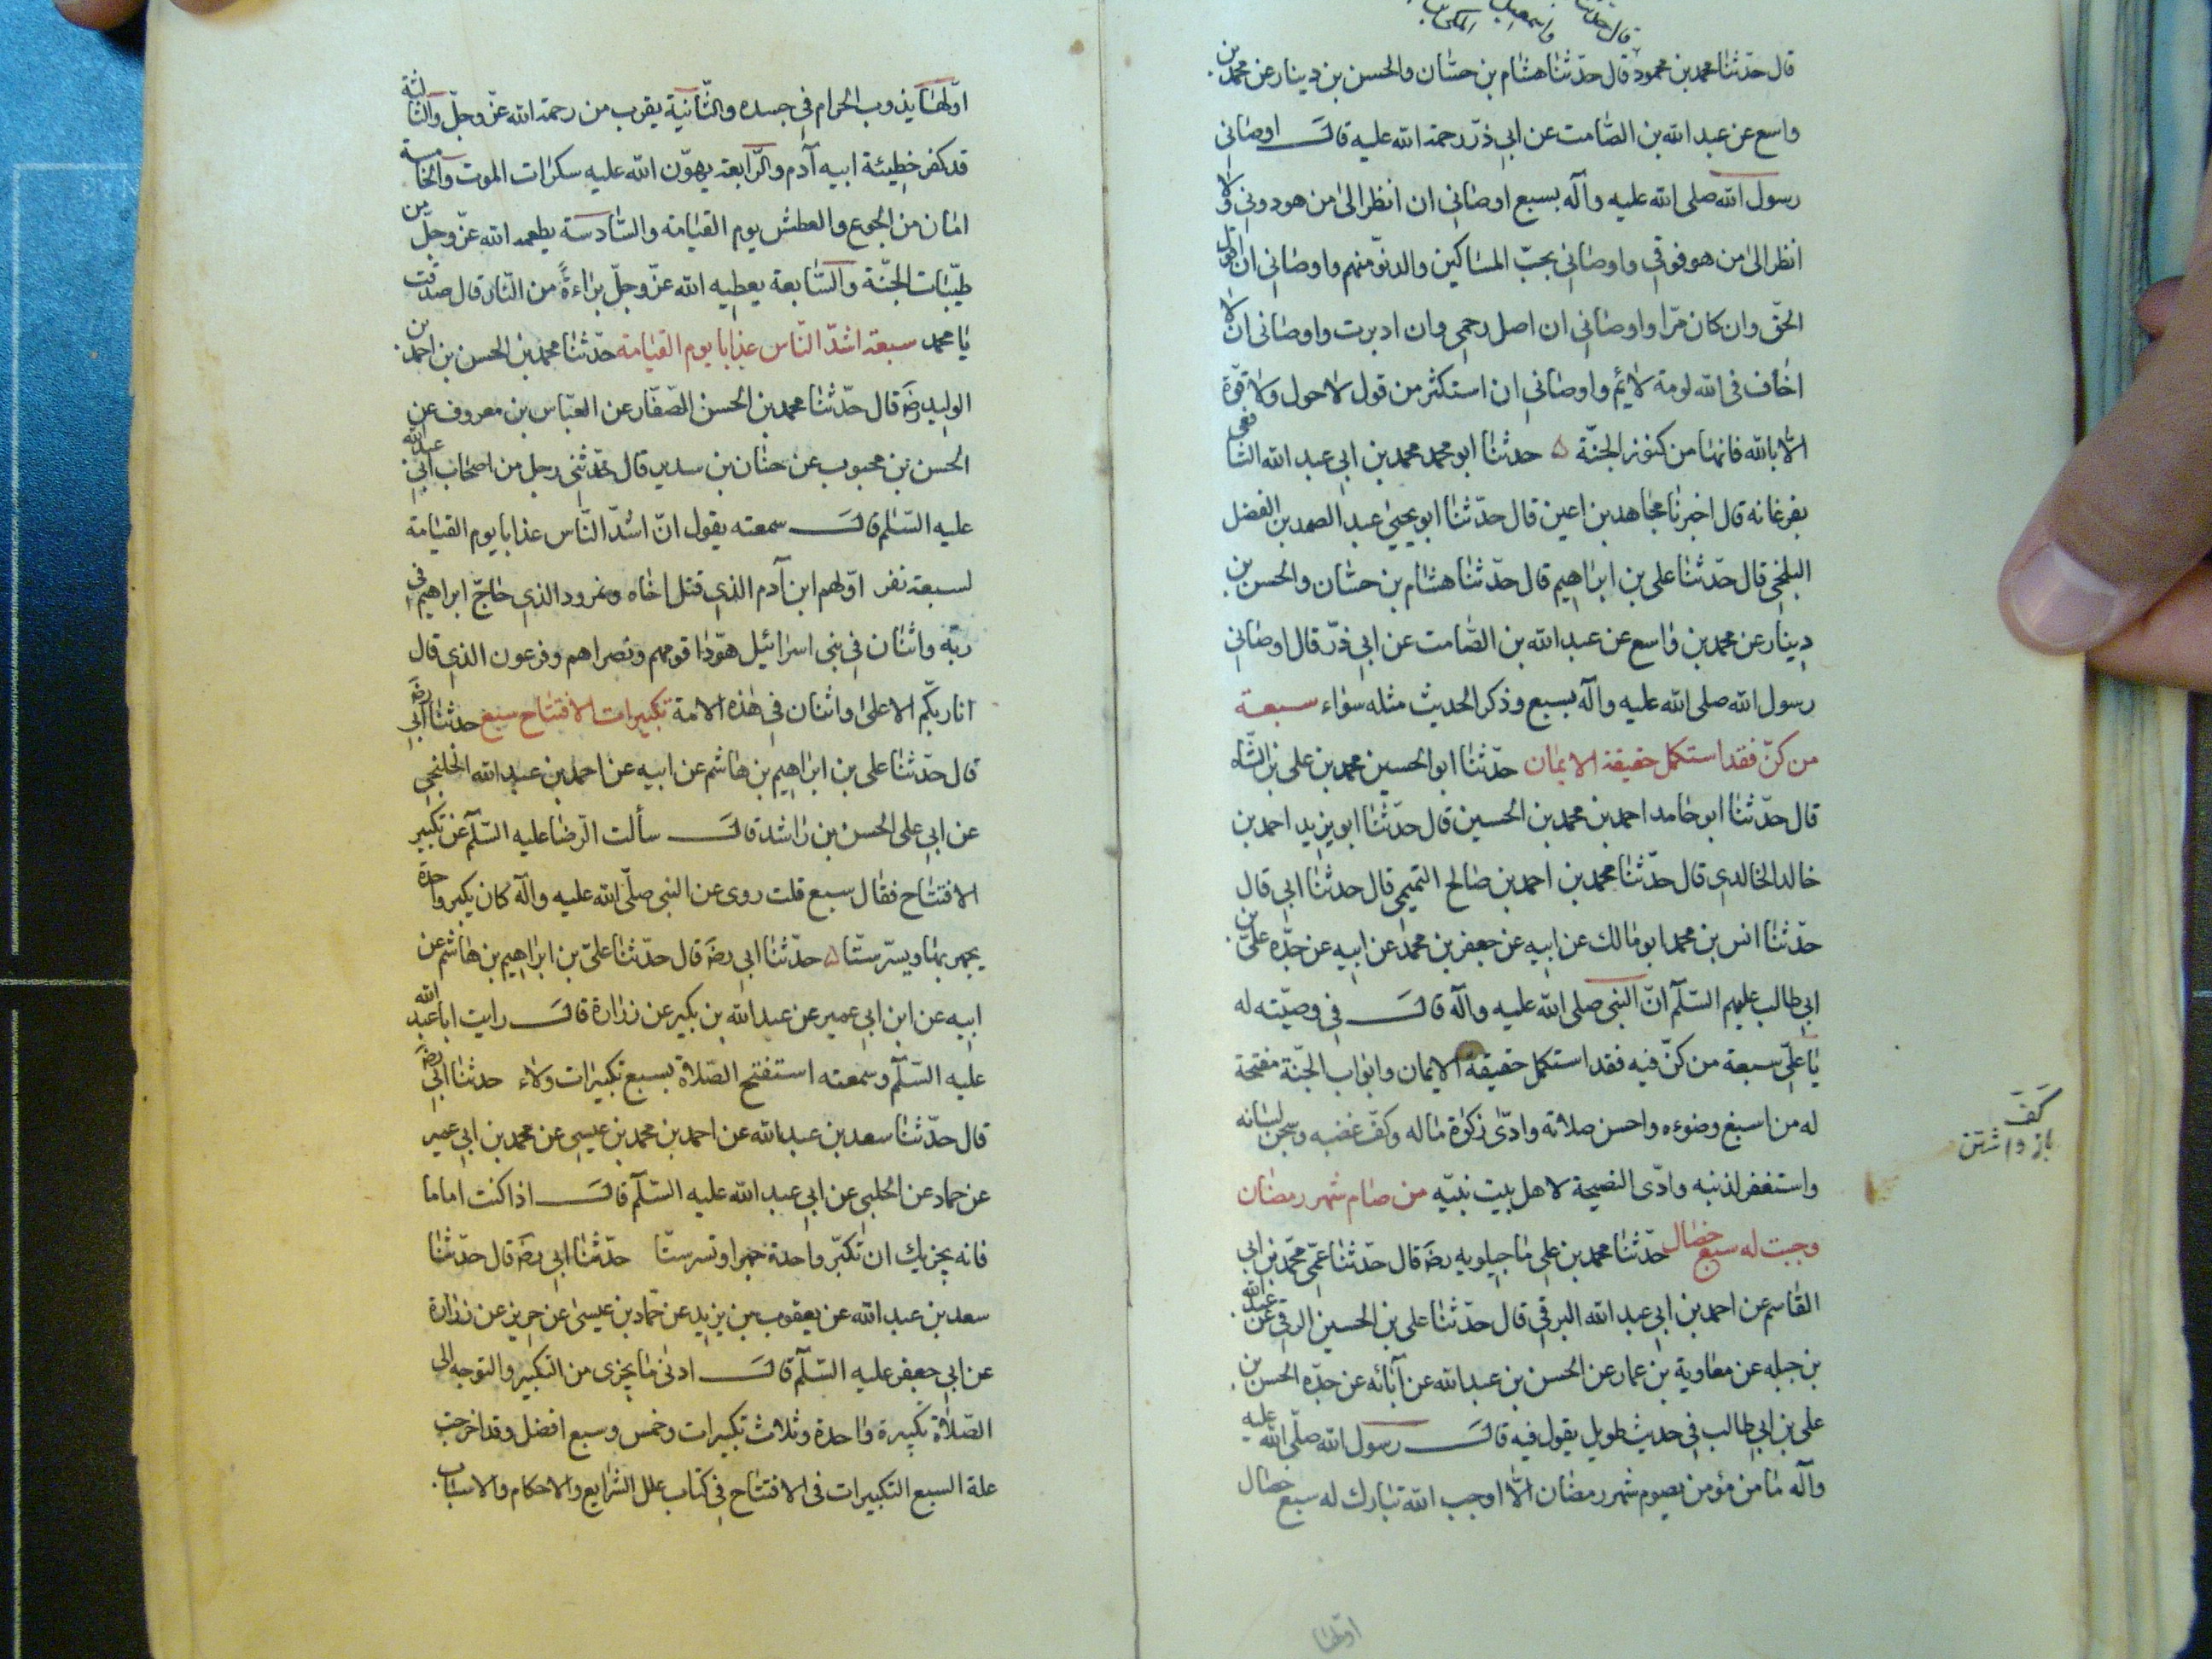 قال حدّثنا محمد بن محمود قال حدّثنا هشام بن حسّان والحسن بن دينار عن محمد بن
واسع عن عبد الله بن الصّامت عن ابي ذرّ رحمة الله عليه قال اوصاني
رسول الله صلى الله عليه وآله بسبع اوصاني ان انظر الى من هو دوني ولا
انظر الى من هو فوقي واوصاني بحبّ المساكين والدنوّ منهم واوصاني ان اقول
الحقّ وان كان مرّا واوصاني ان اصل رحمي وان ادبرت واوصاني ان لا
اخاف في الله لومة لائم واوصاني ان استكثر من قول لا حول ولا قوّة
الّا بالله فانها من كنوز الجنّة حدثنا ابو محمد محمد بن ابي عبد الله الشافعي
بفرغانه قال اخبرنا مجاهد بن اعين قال حدّثنا ابو يحيى عبد الصمد بن الفضل
البلخي قال حدّثنا علي بن ابراهيم قال حدّثنا هشام بن حسّان والحسن بن
دينار عن محمد بن واسع عن عبد الله بن الصّامت عن ابي ذرّ قال اوصاني
رسول الله صلى الله عليه وآله بسبع وذكر الحديث مثله سواء سبعة
من كنّ فقد استكمل حقيقة الايمان حدّثنا ابو الحسين محمد بن علي بن الشّاه
قال حدّثنا ابو حامد احمد بن محمد بن الحسين قال حدّثنا ابو يزيد احمد بن
خالد الخالدي قال حدّثنا محمد بن احمد بن صالح التميمي قال حدثنا ابي قال
حدّثنا انس بن محمد ابو مالك عن ابيه عن جعفر بن محمد عن ابيه عن جدّه عليّ بن
ابي طالب عليهم السّلم انّ النبي صلى الله عليه وآله قال في وصيّته له
يا عليّ سبعة من كنّ فيه فقد استكمل حقيقة الايمان وابواب الجنّة مفتحة
له من اسبغ وضوءه واحسن صلاته وادّى زكوة ماله وكفّ غضبه وسجن لسانه
واستغفر لذنبه وادّى النصيحة لاهل بيت نبيّه من صام شهر رمضان
وجبت له سبع خصال حدّثنا محمد بن علي ماجيلويه رضه قال حدّثنا عمّي محمّد بن ابي
القاسم عن احمد بن ابي عبد الله البرقي قال حدّثنا علي بن الحسين الرقي عن عبد الله
بن جبله عن معاوية بن عمار عن الحسن بن عبد الله عن آبائه عن جدّه الحسن بن
علي بن ابي طالب في حديث طويل يقول فيه قال رسول الله صلّى الله عليه
وآله ما من مؤمن يصوم شهر رمضان الّا اوجب الله تبارك له سبع خصال
كفّ
باز داشتن
اوّلها
اوّلها يذوب الحرام في جسده والثّانية يقرب من رحمة الله عزّ وجلّ والثّالثة
قد كفر خطيئة ابيه آدم والرّابعة يهوّن الله عليه سكرات الموت والخامسة
امان من الجوع والعطش يوم القيامة والسّادسة يطعمه الله عزّ وجلّ من
طيّبات الجنّة والسّابعة يعطيه الله عزّ وجلّ براءةً من النّار قال صدقت
يا محمد سبعة اشدّ النّاس عذابا يوم القيامة حدّثنا محمد بن الحسن بن احمد بن
الوليد رضه قال حدّثنا محمد بن الحسن الصّفّار عن العبّاس بن معروف عن
الحسن بن محبوب عن حنان بن سدير قال حدّثني رجل من اصحاب ابي عبد الله
عليه السّلم قال سمعته يقول انّ اشدّ النّاس عذابا يوم القيامة
لسبعة نفر اوّلهم ابن آدم الذي قتل اخاه ونمرود الذي حاجّ ابراهيم في
ربّه واثنان في بني اسرائيل هوّدا قومهم ونصراهم وفرعون الذي قال
انا ربّكم الاعلى واثنان في هذه الامة تكبيرات الافتتاح سبع حدثنا ابي رضه
قال حدّثنا علي بن ابراهيم بن هاشم عن ابيه عن احمد بن عبد الله الخلنجي
عن ابي علي الحسن بن راشد قال سألت الرّضا عليه السّلم عن تكبير
الافتتاح فقال سبع قلت روى عن النبي صلّى الله عليه وآله كان يكبر واحدة
يجهر بها ويسرّ ستّا حدّثنا ابي رضه قال حدّثنا عليّ بن ابراهيم بن هاشم عن
ابيه عن ابن ابي عمير عن عبد الله بن بكير عن زرارة قال رايت ابا عبد الله
عليه السّلم وسمعته استفتح الصّلاة بسبع تكبيرات ولاء حدثنا ابي رضه
قال حدّثنا سعد بن عبد الله عن احمد بن محمد بن عيسى عن محمد بن ابي عمير
عن حماد عن الحلبي عن ابي عبد الله عليه السّلم قال اذا كنت اماما
فانه يجزيك ان تكبّر واحدة جهرا وتسر ستّا حدّثنا ابي رضه قال حدّثنا
سعد بن عبد الله عن يعقوب بن يزيد عن حمّاد بن عيسى عن حريز عن زرارة
عن ابي جعفر عليه السّلم قال ادنى ما يجزى من التكبير والتوجه الى
الصّلاة تكبيرة واحدة وثلاث تكبيرات وخمس وسبع افضل وقد اخرجت
علة السبع التكبيرات في الافتتاح في كتاب علل الشرايع والاحكام والاسباب